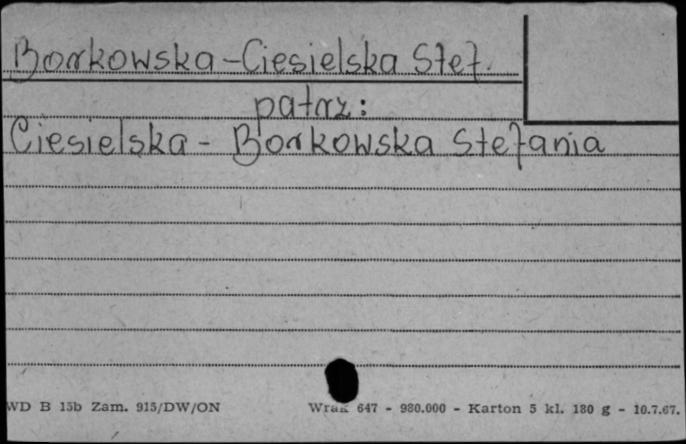 Borkowska-Ciesielska Stef.
patrz:
Ciesielska - Borkowska Stefania
WD B 15b Zam. 915/DW/ON 647 - 980.000 - Karton 5 kl. 180 g - 10.7.67.